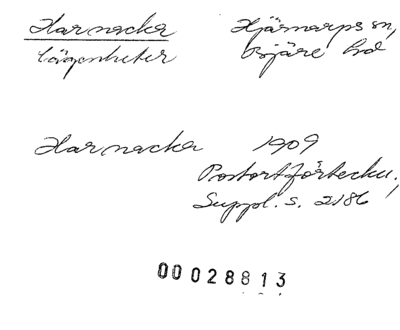 Harnacka Hjärnarps sn,
lägenheter Bjäre hd
Harnacka 1909
Postortförteckn.,
Suppl. s. 2186
00028813